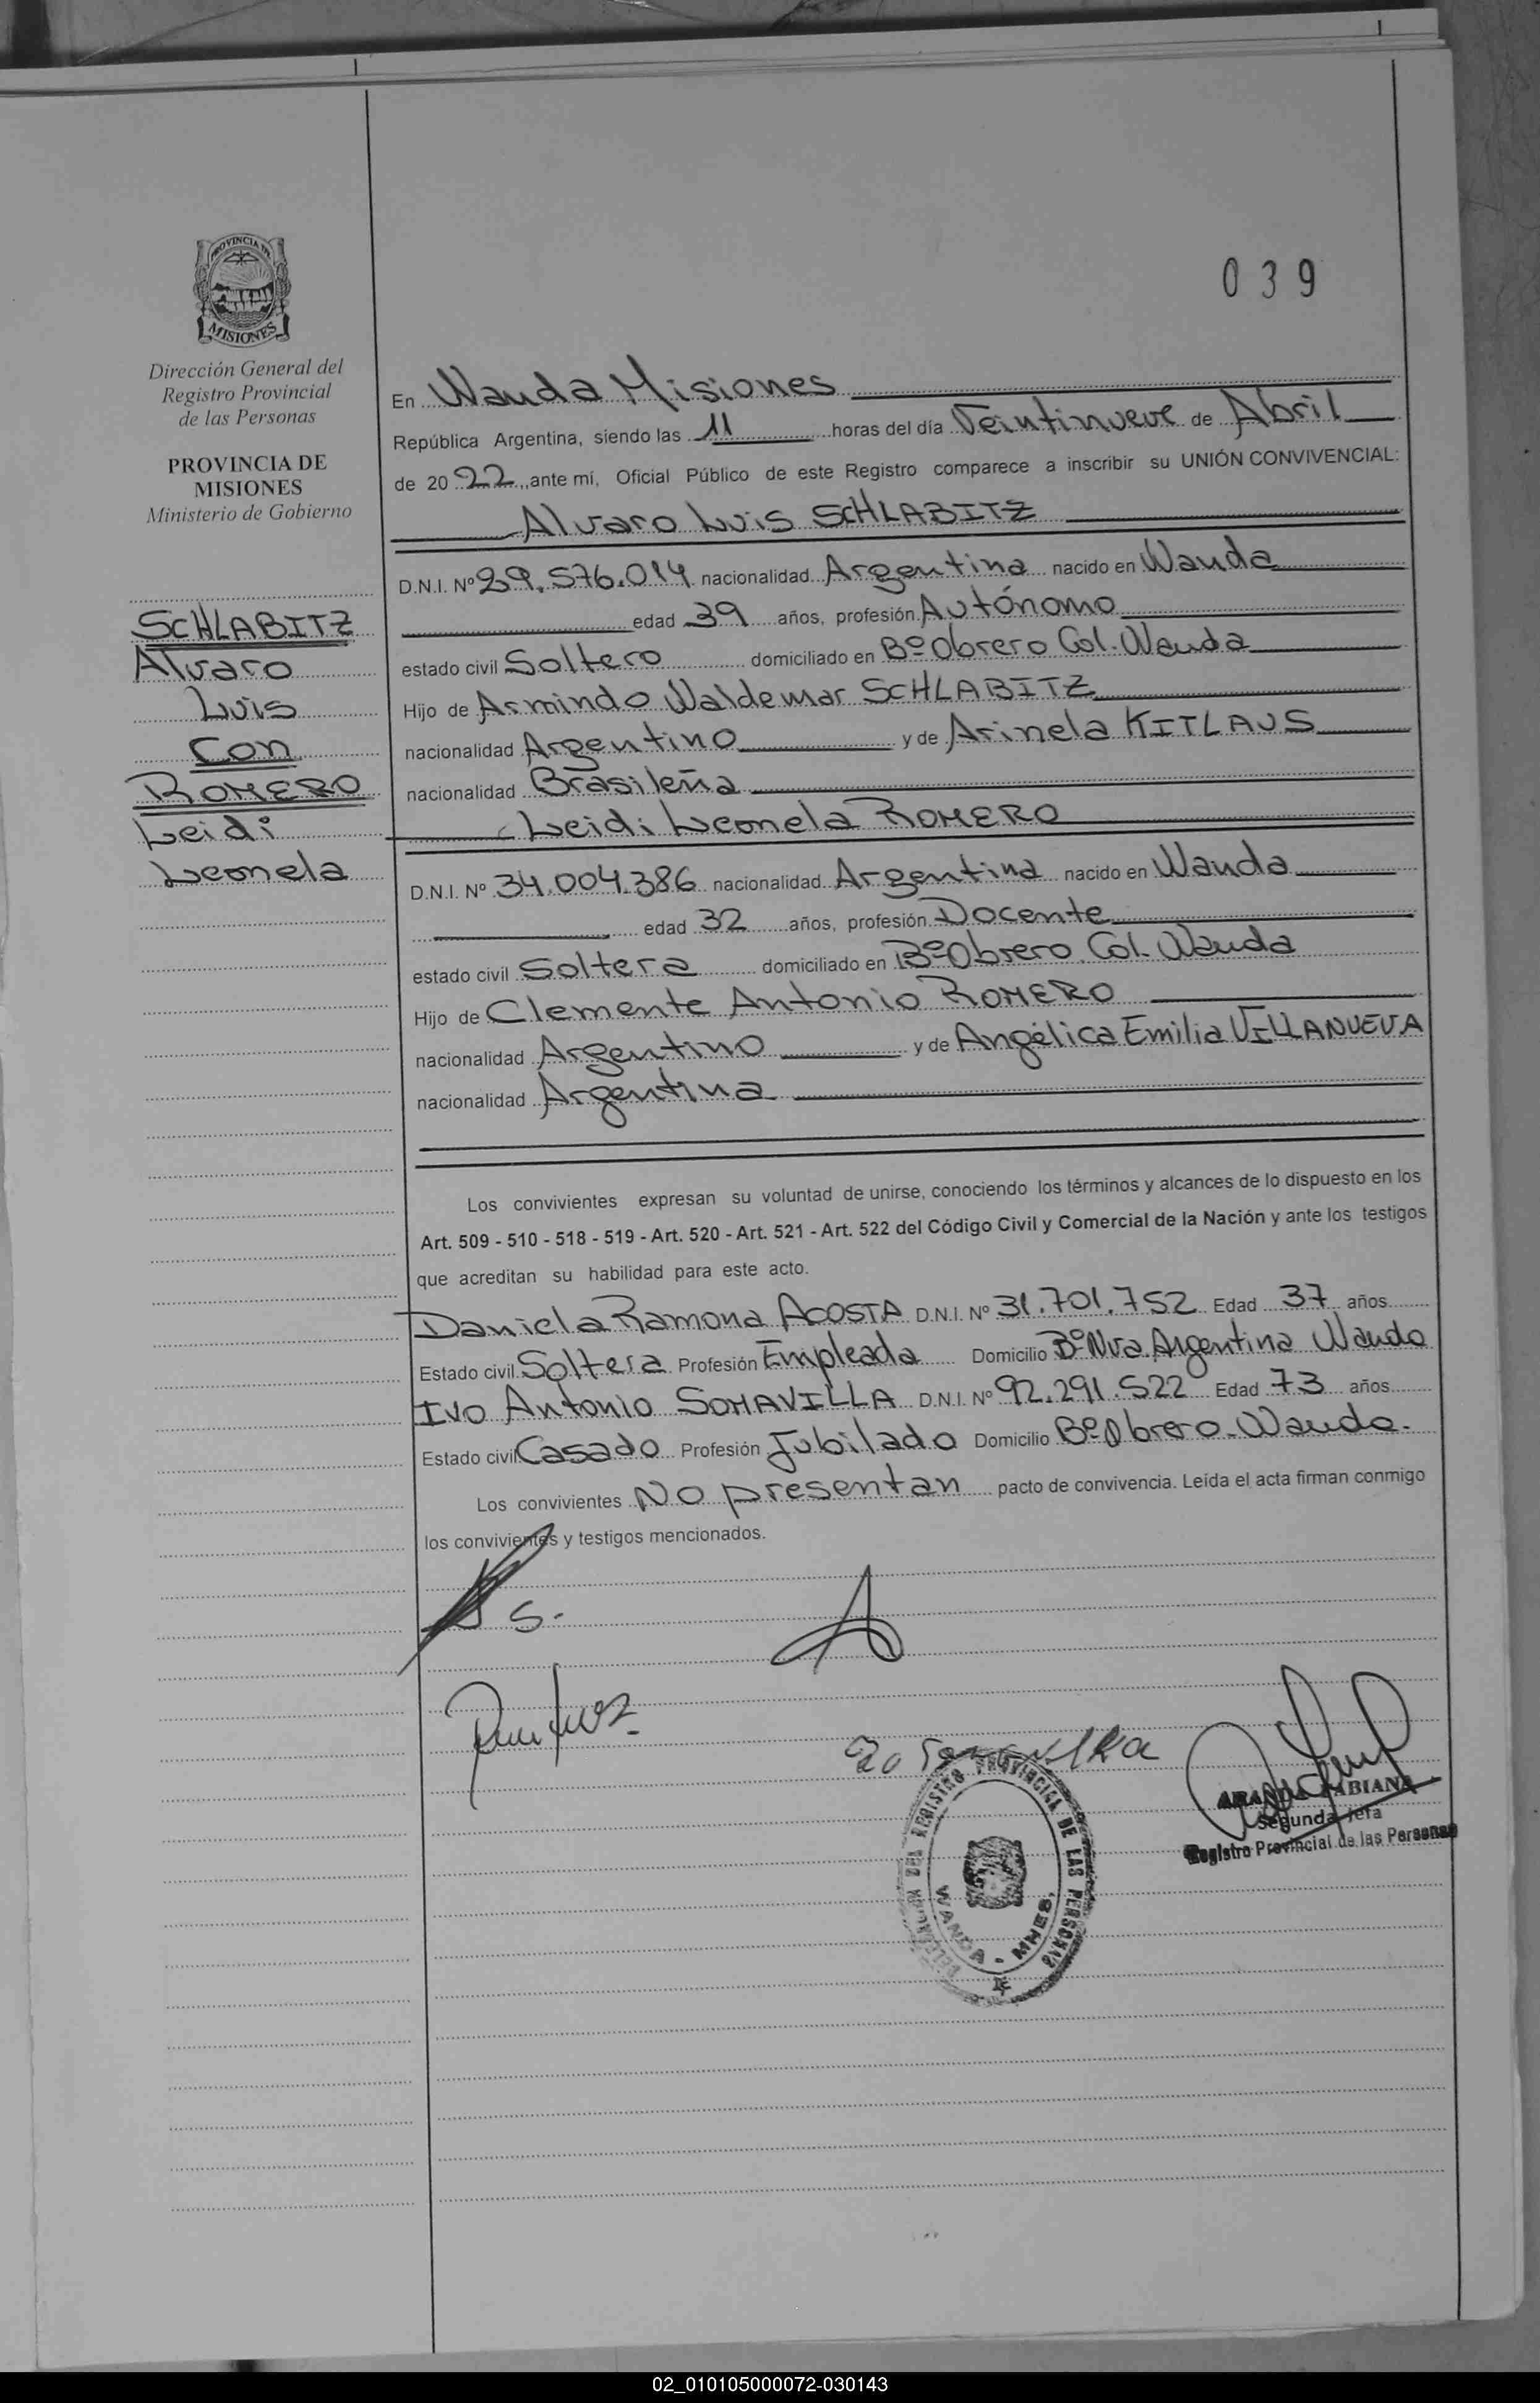 039
PROVINCIA DE
MISIONES
Dirección General del
Registro Provincial
de las Personas
PROVINCIA DE
MISIONES
Ministerio de Gobierno
SCHLABITZ
Alvaro
Luis
Con
ROMERO
Leidi
Leonela
En Wanda Misiones
República Argentina, siendo las 11 horas del día Veintinueve de Abril
de 2022, ante mí, Oficial Público de este Registro comparece a inscribir su UNIÓN CONVIVENCIAL:
Alvaro Luis SCHLABITZ
D.N.I. Nº 29.576.014 nacionalidad Argentina nacido en Wanda
edad 39 años, profesión Autónomo
estado civil Soltero domiciliado en Bº Obrero Col. Wanda
Hijo de Armindo Waldemar SCHLABITZ
nacionalidad Argentino y de Arinela KITLAUS
nacionalidad Brasileña
Leidi Leonela ROMERO
D.N.I. Nº 34.004.386 nacionalidad Argentina nacido en Wanda
edad 32 años, profesión Docente
estado civil Soltera domiciliado en Bº Obrero Col. Wanda
Hijo de Clemente Antonio ROMERO
nacionalidad Argentino y de Angélica Emilia VILLANUEVA
nacionalidad Argentina
Los convivientes expresan su voluntad de unirse, conociendo los términos y alcances de lo dispuesto en los
Art. 509 - 510 - 518 - 519 - Art. 520 - Art. 521 - Art. 522 del Código Civil y Comercial de la Nación y ante los testigos
que acreditan su habilidad para este acto.
Daniela Ramona ACOSTA D.N.I. Nº 31.701.752 Edad 37 años
Estado civil Soltera Profesión Empleada Domicilio Bº Nva. Argentina Wanda
Ivo Antonio SOMAVILLA D.N.I. Nº 92.291.522 Edad 73 años
Estado civil Casado Profesión Jubilado Domicilio Bº Obrero - Wanda.
Los convivientes No presentan pacto de convivencia. Leída el acta firman conmigo
los convivientes y testigos mencionados.
Segunda Jefa
Registro Provincial de las Personas
DELEGACION DEL REGISTRO PROVINCIAL DE LAS PERSONAS
WANDA - MNES.
02_010105000072-030143